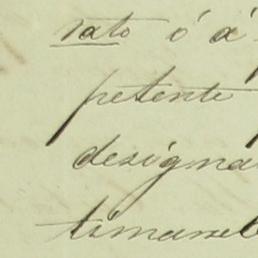 rato ó á
petente
designa
timareb